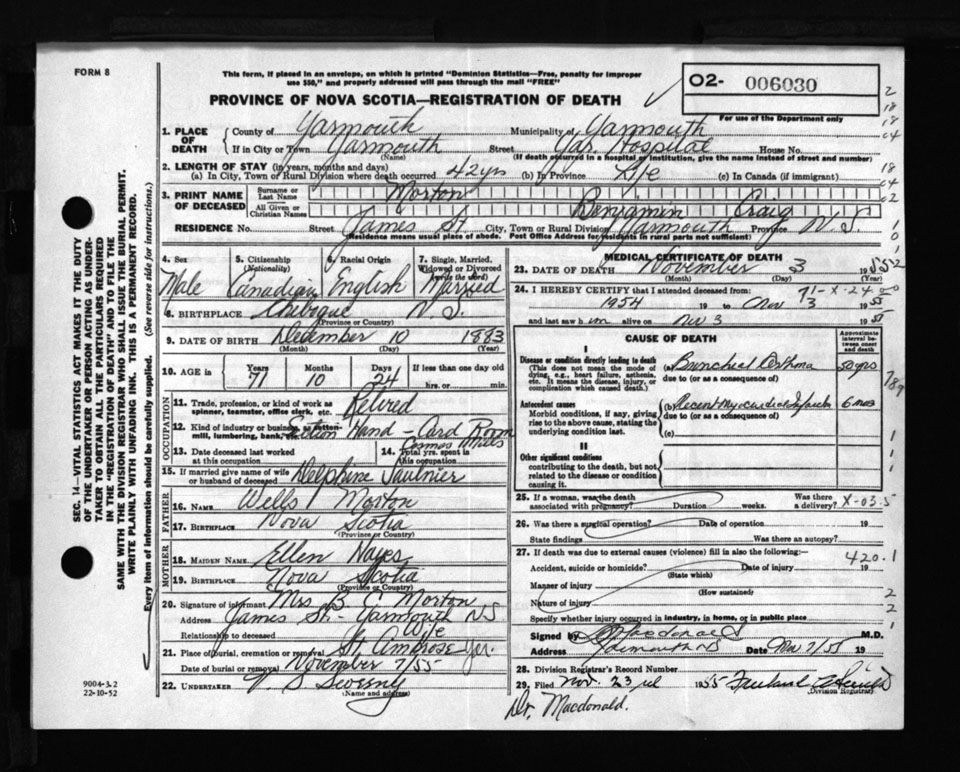 FORM 8
This form, if placed in an envelope, on which is printed "Dominion Statistics—Free, penalty for improper
use $50," and properly addressed will pass through the mail "FREE"
PROVINCE OF NOVA SCOTIA—REGISTRATION OF DEATH
O2- 006030
For use of the Department only
1. PLACE OF DEATH
County of Yarmouth Municipality of Yarmouth
If in City or Town Yarmouth Street Yar. Hospital House No.
(Name) (If death occurred in a hospital or institution, give the name instead of street and number)
2. LENGTH OF STAY (in years, months and days)
(a) In City, Town or Rural Division where death occurred 42 yrs (b) In Province Life (c) In Canada (if immigrant)
3. PRINT NAME OF DECEASED
Surname or Last Name Morton
All Given or Christian Names Benjamin Craig
RESIDENCE No. Street James St. City, Town or Rural Division Yarmouth Province N.S.
(Residence means usual place of abode. Post Office Address for residents in rural parts not sufficient)
4. Sex Male
5. Citizenship (Nationality) Canadian
6. Racial Origin English
7. Single, Married, Widowed or Divorced (write the word) Married
8. BIRTHPLACE Chebogue N.S.
(Province or Country)
9. DATE OF BIRTH December 10 1883
(Month) (Day) (Year)
10. AGE in Years 71 Months 10 Days 24 If less than one day
hrs. or min.
OCCUPATION
11. Trade, profession, or kind of work as spinner, teamster, office clerk, etc. Retired
12. Kind of industry or business, as cotton-mill, lumbering, bank, etc. Hand - Card Room
Cosmos Mills
13. Date deceased last worked at this occupation
14. Total yrs. spent in this occupation
15. If married give name of wife or husband of deceased Delphine Saulnier
FATHER
16. NAME Wells Morton
17. BIRTHPLACE Nova Scotia
(Province or Country)
MOTHER
18. MAIDEN NAME Ellen Hayes
19. BIRTHPLACE Nova Scotia
(Province or Country)
20. Signature of informant Mrs B C Morton
Address James St - Yarmouth NS
Relationship to deceased Wife
21. Place of burial, cremation or removal St. Ambrose Yar.
Date of burial or removal November 7/55
22. UNDERTAKER V S Sweeny
(Name and address)
MEDICAL CERTIFICATE OF DEATH
23. DATE OF DEATH November 3 1955
(Month) (Day)
71-X-24
24. I HEREBY CERTIFY that I attended deceased from:
1954 19 to Nov 3 1955
and last saw him alive on Nov 3 1955
CAUSE OF DEATH
Approximate interval between onset and death
I
Disease or condition directly leading to death
(This does not mean the mode of dying, e.g., heart failure, asthenia, etc. It means the disease, injury, or complication which caused death.)
(a) Bronchial Asthma 50 yrs
due to (or as a consequence of)
Antecedent causes
Morbid conditions, if any, giving rise to the above cause, stating the underlying condition last.
(b) Recent Myocardial Infarct 6 mos
due to (or as a consequence of)
(c)
II
Other significant conditions
contributing to the death, but not related to the disease or condition causing it.
25. If a woman, was the death associated with pregnancy? Duration weeks. Was there a delivery?
X-03.5
26. Was there a surgical operation? Date of operation 19
State findings Was there an autopsy?
27. If death was due to external causes (violence) fill in also the following:—
420.1
Accident, suicide or homicide? Date of injury 19
(State which)
Manner of injury
(How sustained)
Nature of injury
Specify whether injury occurred in industry, in home, or in public place
Signed by Macdonald M.D.
Address Yarmouth NS Date Nov 7/55 19
28. Division Registrar's Record Number
29. Filed Nov. 23 1955
Division Registrar
Dr. Macdonald.
SEC. 14—VITAL STATISTICS ACT MAKES IT THE DUTY
OF THE UNDERTAKER OR PERSON ACTING AS UNDER-
TAKER TO OBTAIN ALL THE PARTICULARS REQUIRED
IN THE "REGISTRATION OF DEATH" AND TO FILE THE
SAME WITH THE DIVISION REGISTRAR WHO SHALL ISSUE THE BURIAL PERMIT.
WRITE PLAINLY WITH UNFADING INK. THIS IS A PERMANENT RECORD.
Every item of information should be carefully supplied. (See reverse side for instructions.)
9004-3.2
22-10-52